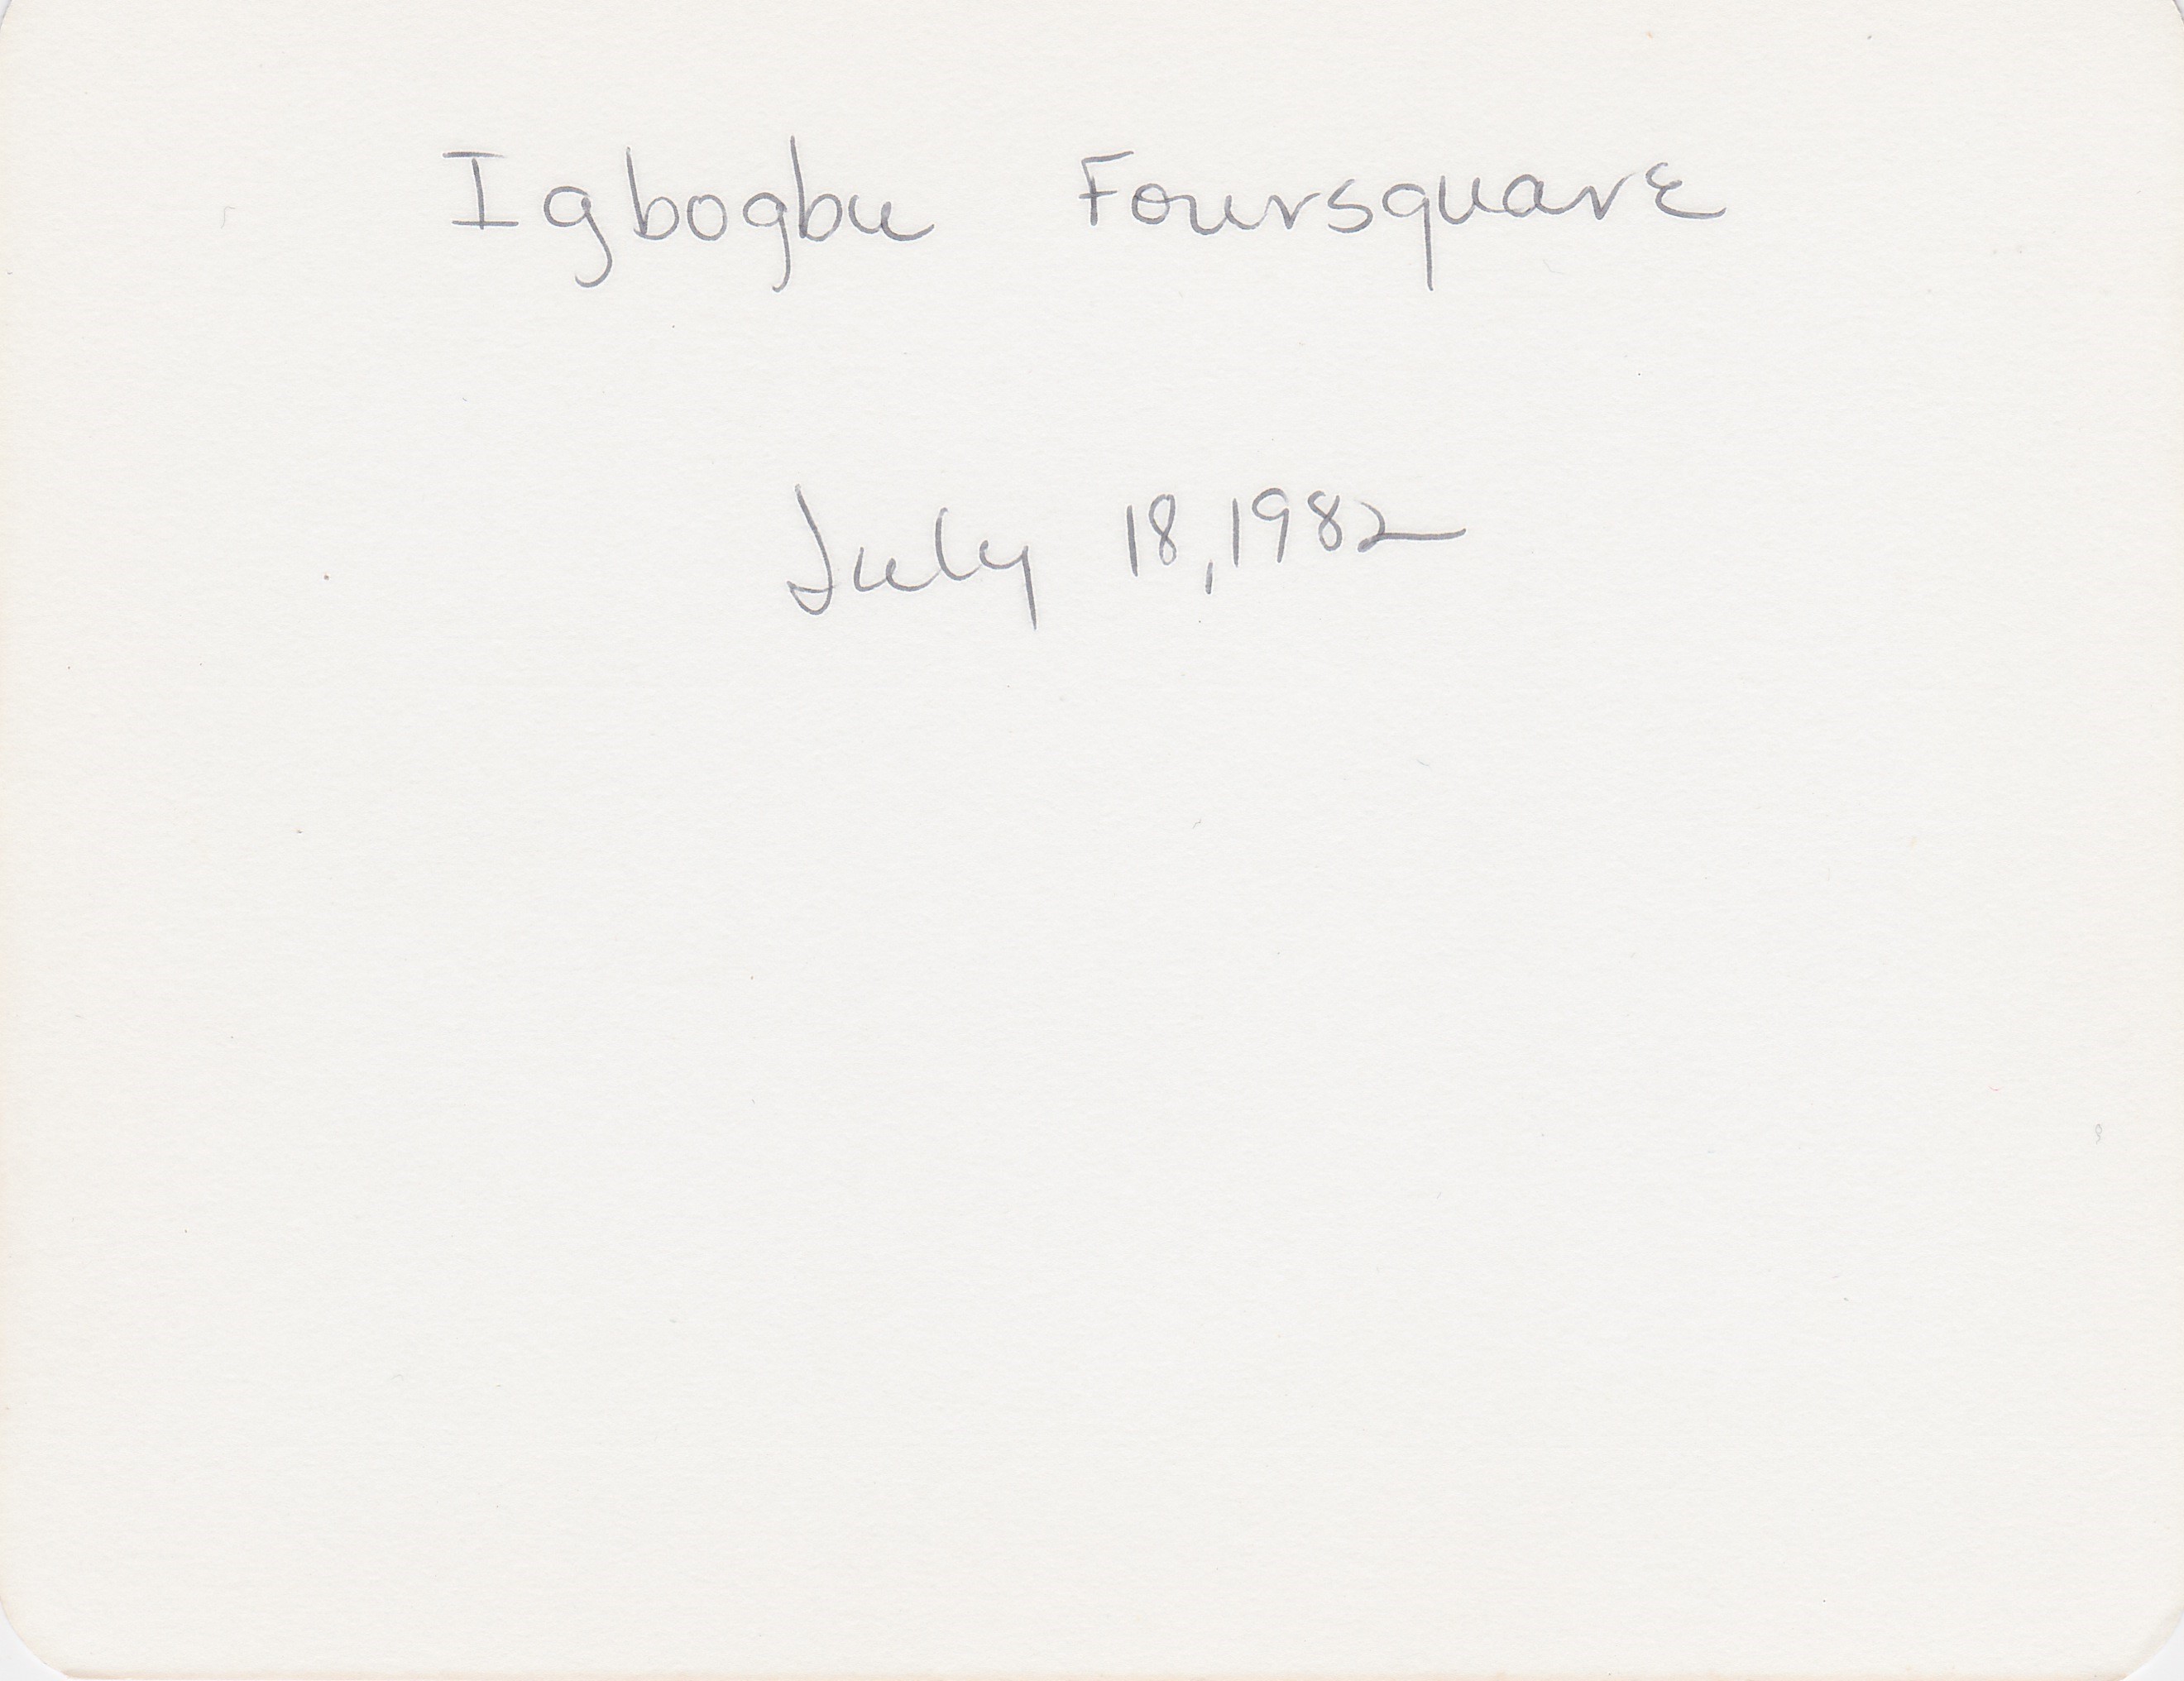 Igbogbu Foursquare
July 18, 1982